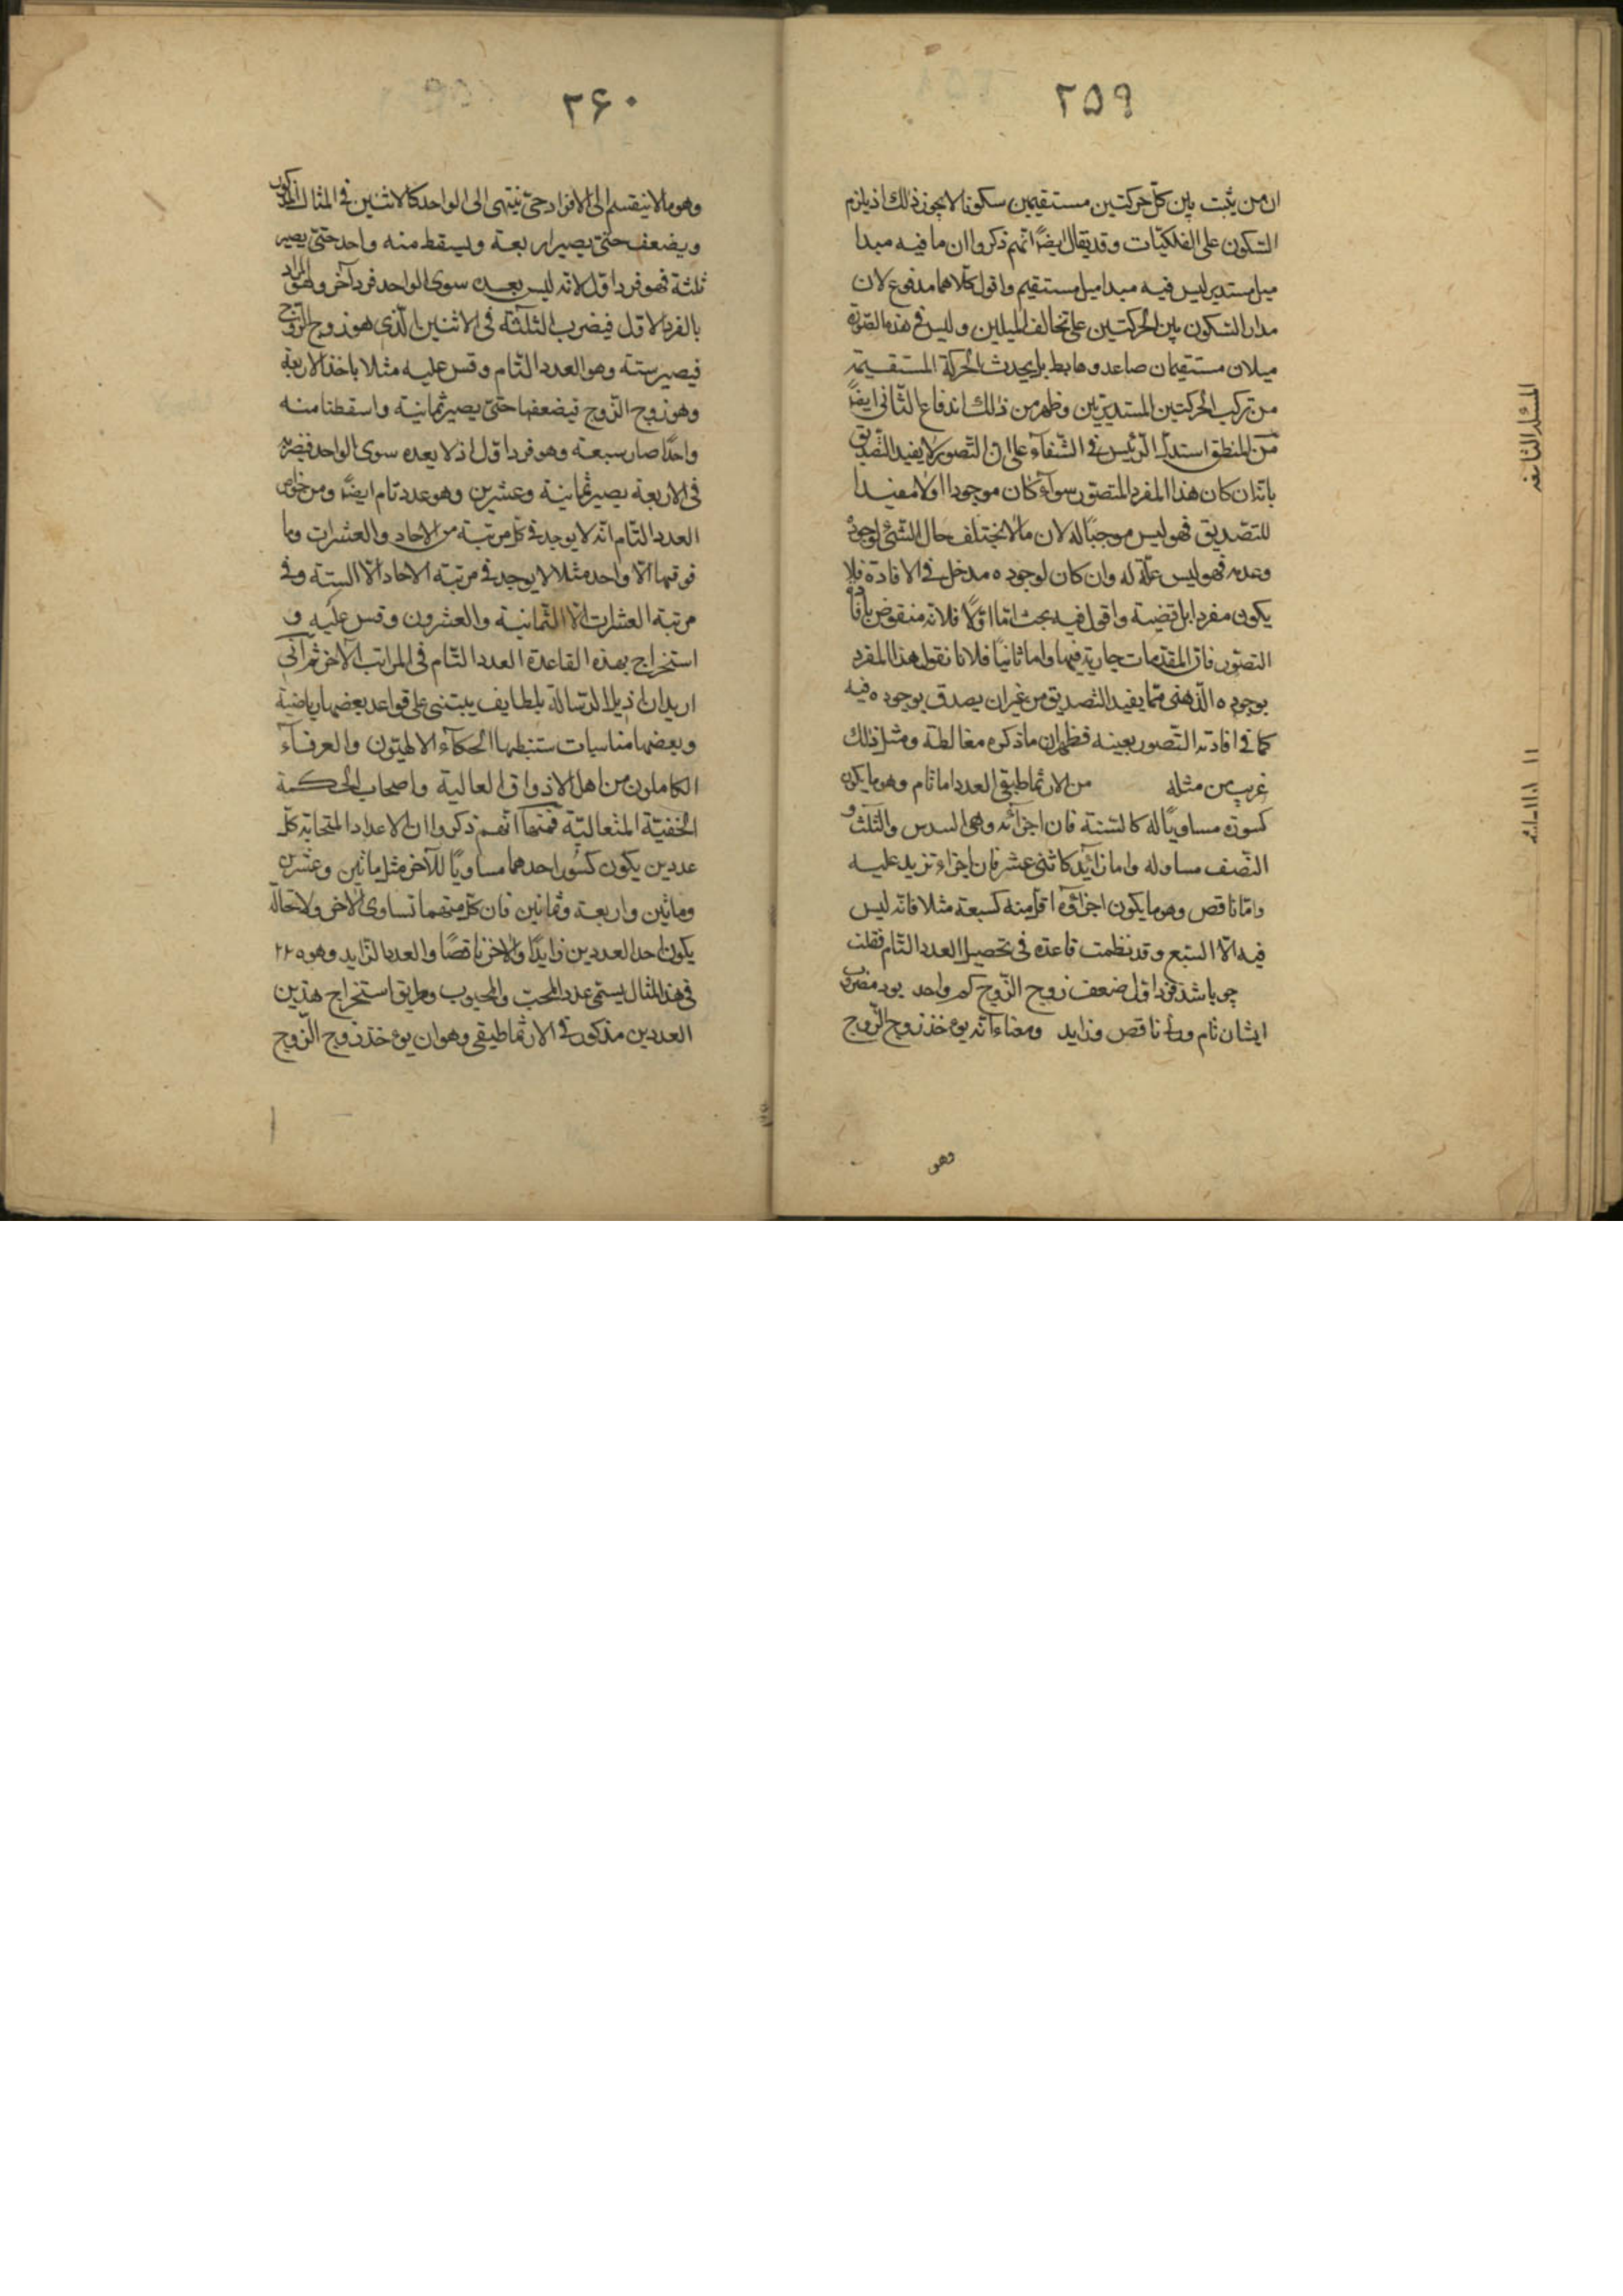 ٢٥٩
ان من يثبت بين كلّ حركتين مستقيمين سكونا لا يجوز ذلك اذ يلزم
السّكون على الفلكيّات وقد يقال ايضًا انهم ذكروا ان ما فيه مبدا
ميل مستدير ليس فيه مبدا ميل مستقيم واقول كلاهما مدفوع لان
مدار السّكون بين الحركتين على تخالف الميلين وليس فى هذه الصّورة
ميلان مستقيمان صاعد وهابط بل يحدث الحركة المستقيمة
من تركيب الحركتين المستديرتين وظهر من ذلك اندفاع الثّانى ايضًا
من المنطق استدلّ الرّئيس فى الشّفآء على ان التّصوّر لا يفيد التّصديق
بانّه ان كان هذا المفرد المتصوّر سوآء كان موجودا اولا مفيدا
للتّصديق فهو ليس موجبًا له لان ما لا يختلف حال الشّئ لوجوده
وعدمه فهو ليس علّة له وان كان لوجوده مدخل فى الافادة فلا
يكون مفردا بل قضية واقول فيه بحث امّا اوّلًا فلانّه منقوض بافادة
التصوّر فان المقدّمات جارية فيها واما ثانيًا فلانا نقول هذا المفرد
بوجوده الذّهنى ممّا يفيد التّصديق من غير ان يصدق بوجوده فيه
كما فى افادته التّصور بعينه فظهر ان ما ذكره مغالطة ومثل ذلك
غريب من مثله من الارثماطيقى العدد اما تام وهو ما يكون
كسوره مساويًا له كالستّة فان اجزائه وهى السدس والثلث و
النّصف مساو له واما زائد كاثنى عشر فان اجزاءه تزيد عليه
وامّا ناقص وهو ما يكون اجزاؤه اقل منه كسبعة مثلا فانّه ليس
فيه الّا السّبع وقد نظمت قاعدة فى تحصيل العدد التّام فقلت
چو باشد فرد اوّل ضعف زوج الزّوج كم واحد بود مضروب
ايشان تام ورنه ناقص وزايد ومعناه انّه يؤخذ زوج الزّوج
وهو
٢۶٠
وهو ما لا ينقسم الى الافراد حتى ينتهى الى الواحد كالاثنين فى المثال المذكور
ويضعف حتّى يصير اربعة ويسقط منه واحد حتّى يصير
ثلثة فهو فرد اوّل لانّه ليس بعده سوى الواحد فرد آخر وهو المراد
بالفرد الاوّل فيضرب الثلثة فى الاثنين الّذى هو زوج الزّوج
فيصير ستة وهو العدد التّام وقس عليه مثلا باخذ الاربعة
وهو زوج الزّوج فيضعفها حتّى يصير ثمانية واسقطنا منه
واحدًا صار سبعة وهو فرد اوّل اذ لا يعده سوى الواحد فيضربه
فى الاربعة يصير ثمانية وعشرين وهو عدد تام ايضًا ومن خواص
العدد التّام انّه لا يوجد فى كلّ مرتبة من الاحاد والعشرات وما
فوقها الّا واحد مثلا لا يوجد فى مرتبة الاحاد الّا الستة وفى
مرتبة العشرات الّا الثّمانية والعشرون وقس عليه و
استخراج بهذه القاعدة العدد التّام فى المراتب الآخر ثم انّى
اريد ان اذيل الرّسالة بلطايف يبتنى على قواعد بعضها رياضية
وبعضها مناسبات ستنبطها الحكمآء الالهيّون والعرفآء
الكاملون من اهل الاذواق العالية واصحاب الحكمة
الخفيّة المتعاليّة فمنها انّهم ذكروا ان الاعداد المتحابّه كلّ
عددين يكون كسُور احدهما مساويًا للآخر مثل مائتين وعشرين
ومائتين واربعة وثمانين فان كل منهما تساوى الاخر ولا محالة
يكون احد العددين زايدًا والاخر ناقصًا والعدد الزّايد وهو ٢٢٥
فى هذا المثال يسمّى عدد المحبّ والمحبوب وطريق استخراج هذين
العددين مذكور فى الارثماطيقى وهو ان يؤخذ زوج الزّوج